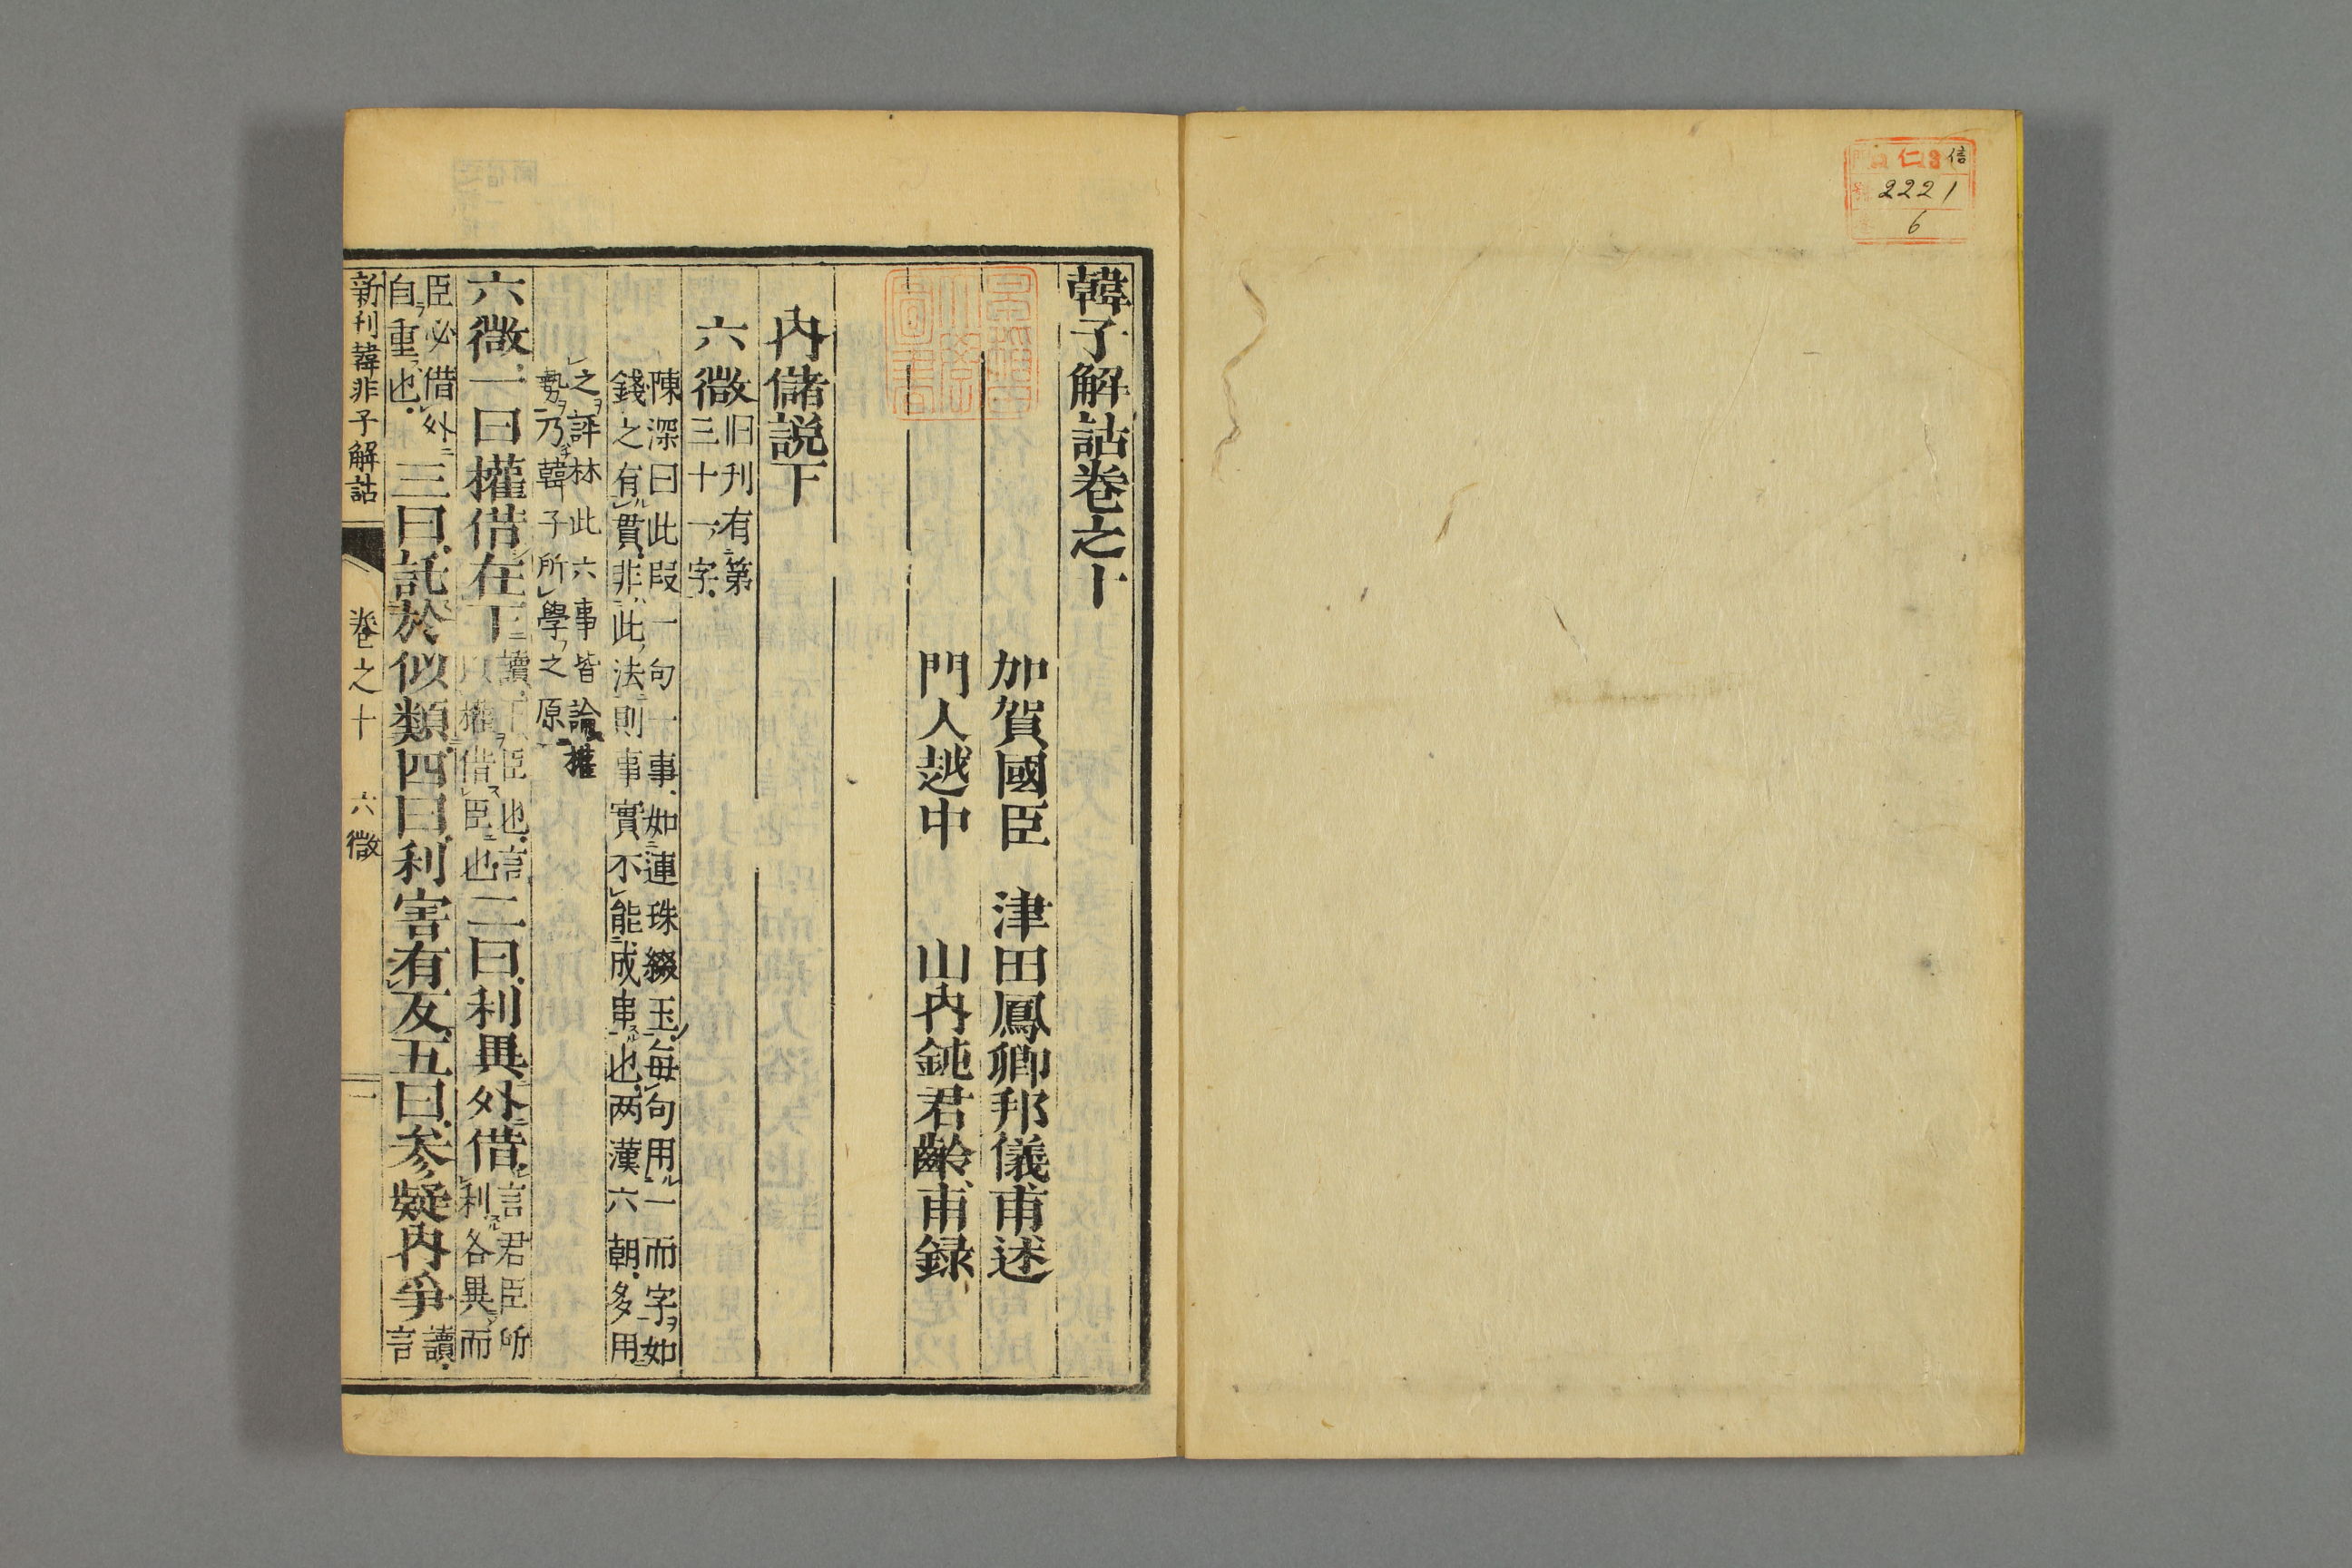 仁 3 信
2221
6
韓子解詁卷之十
加賀國臣 津田鳳卿邦儀甫述
門人越中 山內鈍君齡甫録
內儲説下
六微 旧刊有第
三十一字
陳深曰此段一句一事如連珠綴玉每句用一而字如
錢之有貫非此法則事實不能成串也两漢六朝多用
之評林此六事皆論權
勢乃韓子所學之原
六微一曰權借在下 讀下臣也言
以權借臣也 二曰利異外借 言君臣所
利各異而
臣必借外
自重也 三曰託於似類四曰利害有反五曰參疑內爭 讀
言
新刊韓非子解詁 卷之十 六微 一